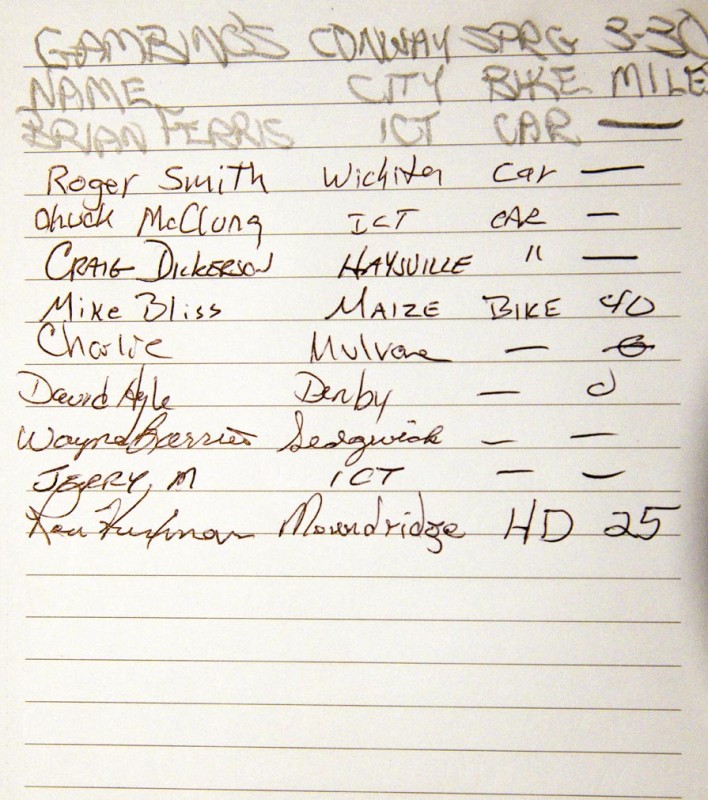 GAMBINO'S CONWAY SPRG 3-30
NAME CITY BIKE MILES
BRIAN FERRIS ICT CAR —
Roger Smith Wichita Car —
Chuck McClung ICT CAR —
CRAIG DICKERSON HAYSVILLE " —
Mike Bliss MAIZE BIKE 40
Charlie Mulvane —
David Derby —
Wayne Sedgwick — —
JERRY, M ICT — —
Moundridge HD 25